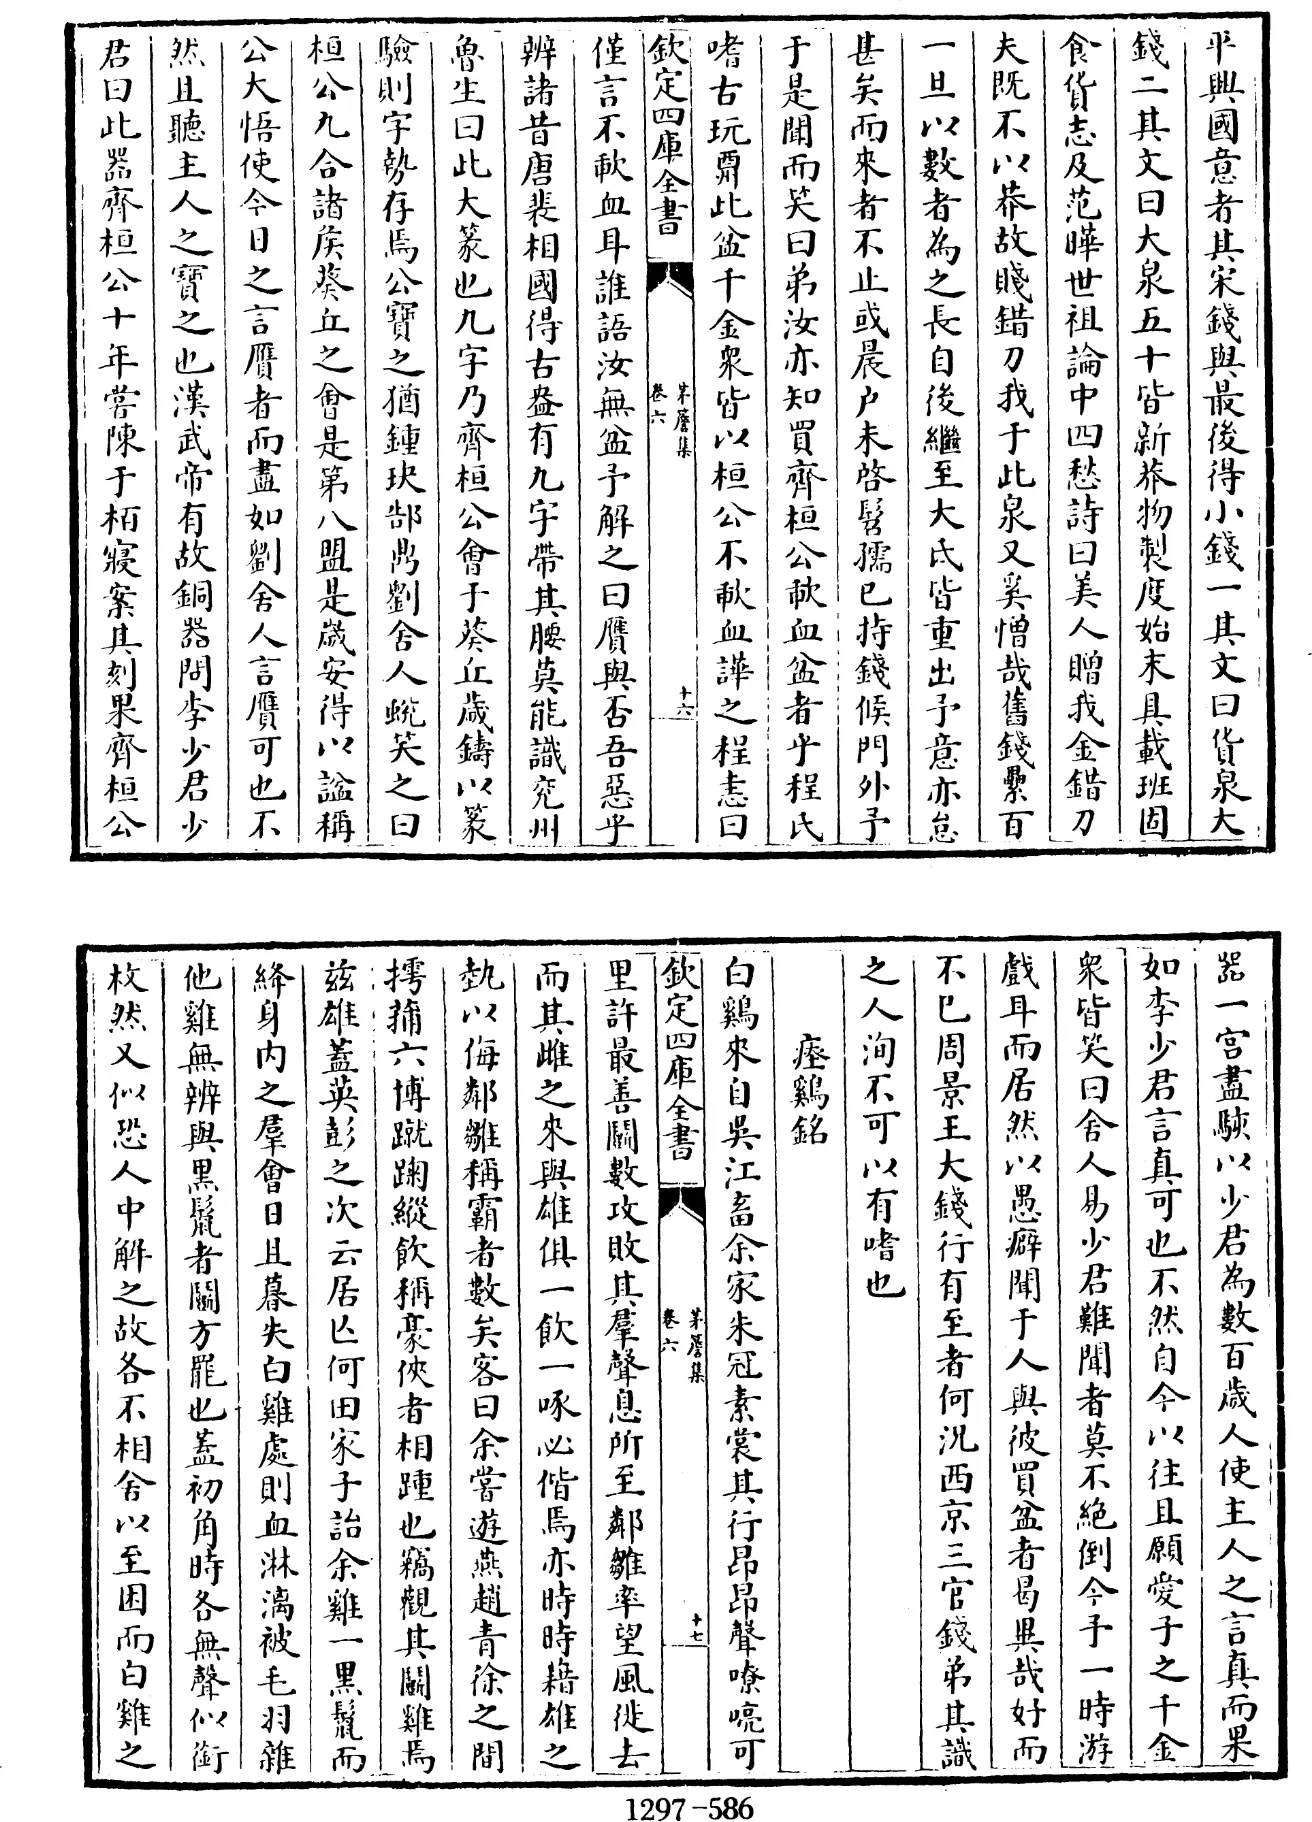 平興國意者其宋錢與最後得小錢一其文曰貨泉大
錢二其文曰大泉五十皆新莽物製度始末具載班固
食貨志及范曄世祖論中四愁詩曰美人贈我金錯刀
夫既不以莽故賤錯刀我于此泉又奚憎哉舊錢纍百
一旦以數者為之長自後繼至大氐皆重出予意亦怠
甚矣而來者不止或晨户未啓髫孺已持錢候門外予
于是聞而笑曰弟汝亦知買齊桓公歃血盆者乎程氏
嗜古玩鬻此盆千金衆皆以桓公不歃血譁之程恚曰
欽定四庫全書
茅簷集
卷六
十六
僅言不歃血耳誰語汝無盆予解之曰贋與否吾惡乎
辨諸昔唐裴相國得古盎有九字帶其腰莫能識兖州
魯生曰此大篆也九字乃齊桓公會于葵丘歲鑄以篆
驗則字勢存焉公寶之猶鍾玦郜鼎劉舍人蛻笑之曰
桓公九合諸侯葵丘之會是第八盟是歲安得以諡稱
公大悟使今日之言贋者而盡如劉舍人言贋可也不
然且聽主人之寶之也漢武帝有故銅器問李少君少
君曰此器齊桓公十年嘗陳于栢寢案其刻果齊桓公
器一宫盡駭以少君為數百歲人使主人之言真而果
如李少君言真可也不然自今以往且願愛子之千金
衆皆笑曰舍人易少君難聞者莫不絶倒今予一時游
戲耳而居然以愚癖聞于人與彼買盆者曷異哉好而
不已周景王大錢行有至者何况西京三官錢弟其識
之人洵不可以有嗜也
瘞鷄銘
白鷄來自吳江畜余家朱冠素裳其行昂昂聲嘹喨可
欽定四庫全書
茅簷集
卷六
十七
里許最善鬭數攻敗其羣聲息所至鄰雛率望風徙去
而其雌之來與雄俱一飲一啄必偕焉亦時時藉雄之
埶以侮鄰雛稱霸者數矣客曰余嘗遊燕趙青徐之間
摴蒱六博蹴踘縱飲稱豪俠者相踵也竊觀其鬭雞焉
兹雄蓋英彭之次云居亡何田家子詒余雞一黑鬛而
絳身内之羣會日且暮失白雞處則血淋漓被毛羽雜
他雞無辨與黑鬛者鬭方罷也蓋初角時各無聲似銜
枚然又似恐人中解之故各不相舍以至困而白雞之
1297-586